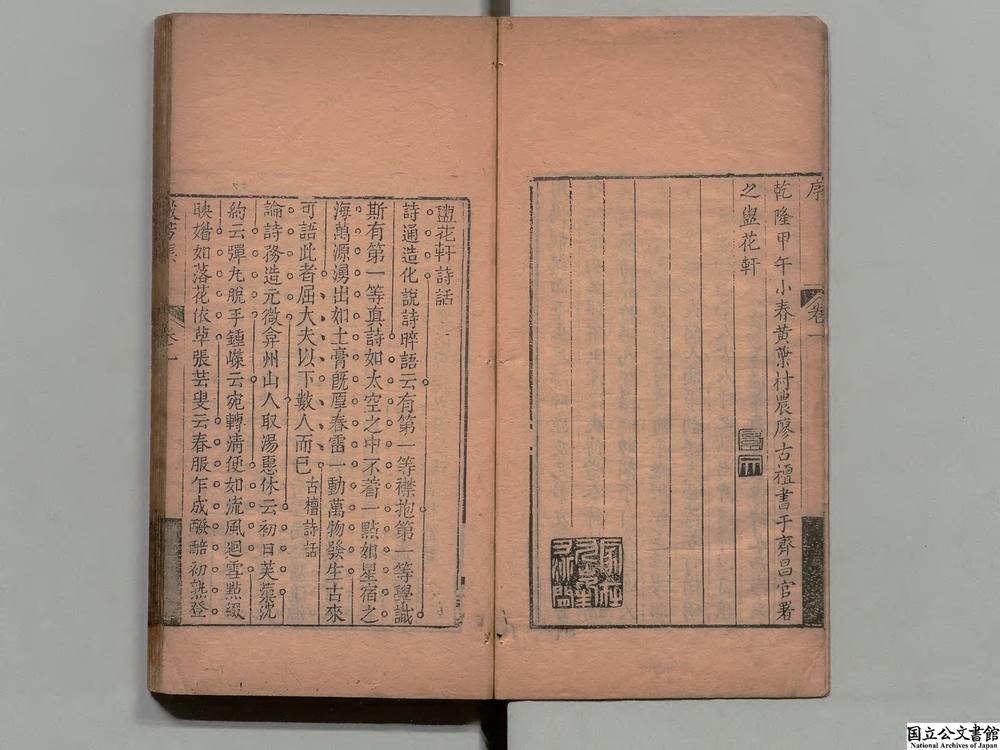 序 卷一
乾隆甲午小春黄葉村農廖古檀書于齊昌官署
之盥花軒
盥花軒詩話
詩通造化說詩晬語云有第一等襟抱第一等學識
斯有第一等真詩如太空之中不着一點如星宿之
海萬源湧出如土膏既厚春雷一動萬物發生古來
可語此者屈大夫以下數人而已古檀詩話
論詩務造元微弇州山人取湯惠休云初日芙蕖沈
約云彈丸脫手鍾嶸云宛轉清便如流風迴雪點綴
映媚如落花依草張芸叟云春服乍成醱醅初熟登
卷一
国立公文書館
National Archives of Japan